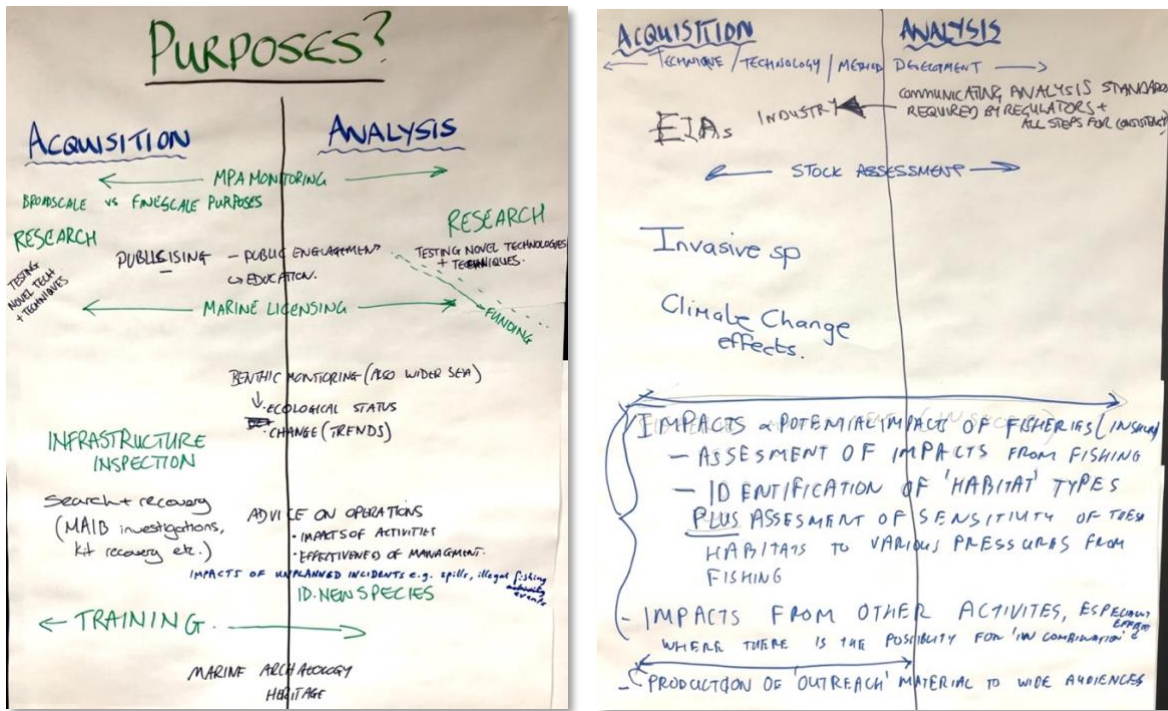 PURPOSES?
ACQUISITION
ANALYSIS
MPA MONITORING
BROADSCALE VS FINESCALE PURPOSES
RESEARCH
TESTING
NOVEL TECH
+ TECHNIQUES
PUBLICISING
- PUBLIC ENGAGEMENT
↳ EDUCATION.
RESEARCH
TESTING NOVEL TECHNOLOGIES
+ TECHNIQUES.
MARINE LICENSING
FUNDING
BENTHIC MONITORING (ALSO WIDER SEA)
↓ · ECOLOGICAL STATUS
· CHANGE (TRENDS)
INFRASTRUCTURE
INSPECTION
Search + recovery
(MAIB investigations,
kit recovery etc.)
ADVICE ON OPERATIONS
· IMPACTS OF ACTIVITIES
· EFFECTIVENESS OF MANAGEMENT.
IMPACTS OF UNPLANNED INCIDENTS e.g. spills, illegal fishing
events
ID. NEW SPECIES
← TRAINING. →
MARINE ARCHAEOLOGY
HERITAGE
ACQUISITION
ANALYSIS
← TECHNIQUE / TECHNOLOGY / METHOD DEVELOPMENT →
EIAs
INDUSTRY ←
COMMUNICATING ANALYSIS STANDARDS
REQUIRED BY REGULATORS +
ALL STEPS FOR CONSISTENCY
← STOCK ASSESSMENT →
Invasive sp
Climate Change
effects.
IMPACTS & POTENTIAL IMPACT OF FISHERIES (INSHORE)
- ASSESMENT OF IMPACTS FROM FISHING
- IDENTIFICATION OF 'HABITAT' TYPES
PLUS ASSESMENT OF SENSITIVITY OF THESE
HABITATS TO VARIOUS PRESSURES FROM
FISHING
- IMPACTS FROM OTHER ACTIVITES, ESPECIALLY
WHERE THERE IS THE POSSIBLITY FOR 'IN COMBINATION' EFFECTS
- PRODUCTION OF 'OUTREACH' MATERIAL TO WIDE AUDIENCES